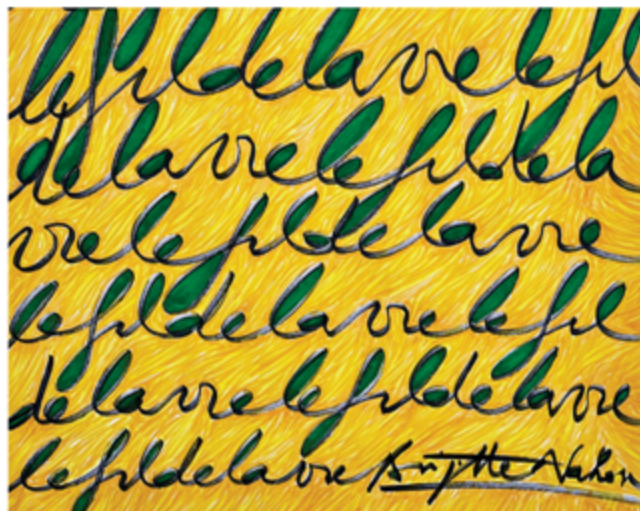 lefildelavielefil
delavielefildela
vielefildelavie
lefildelavielefil
delavielefildelavie
lefildelavie Brigitte Nahon